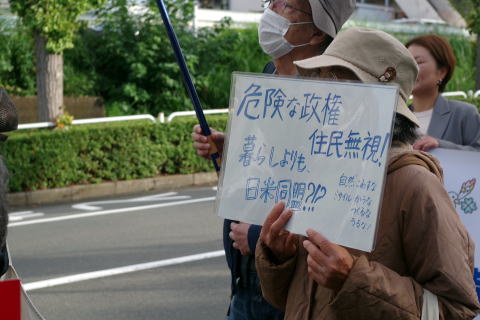 危険な政権
住民無視!
暮らしよりも、
日米同盟?!?
自然こわすな
ミサイルかうな
つくるな
うるな!